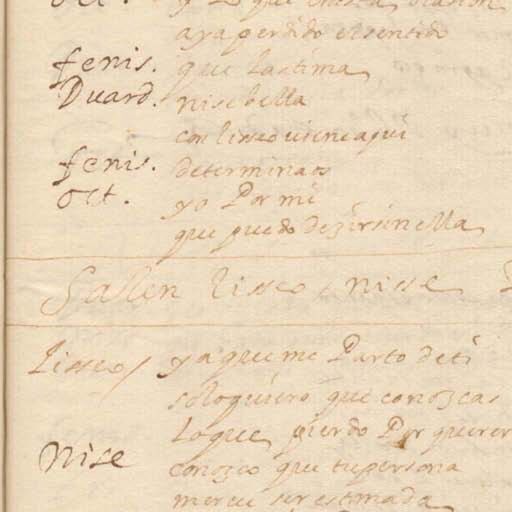 Oct. y
aya perdido el sentido
fenis. que lastima
Duard. nise bella
con liseo viene aqui
fenis. determinaos
Oct. yo Por mi
que puedo dezir sin ella
Salen lisseo, nisse
Lisseo/ ya que me Parto de ti
solo quiero que conozcas
lo que pierdo Por querer
Nise conozco que tu persona
mereci ser estimada